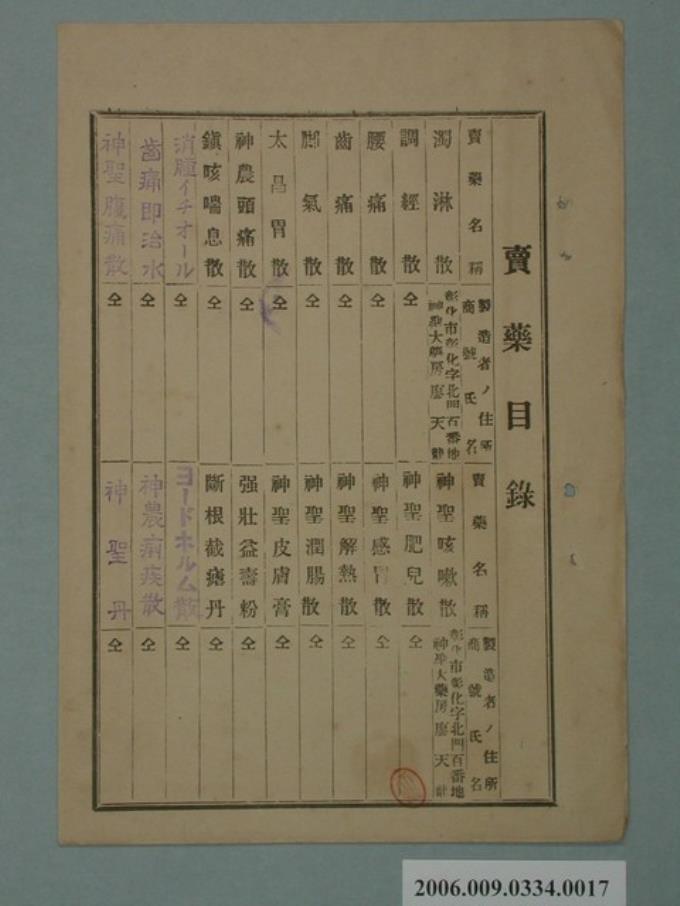 賣藥目錄
賣藥名稱
製造者ノ住所
商號氏名
濁淋散
彰化市彰化字北門百番地
神聖大藥房廖天
調經散
仝
腰痛散
齒痛散
脚氣散
太昌胃散
仝
神農頭痛散
仝
鎭咳喘息散
仝
消腫イチオール
仝
齒痛即治水
仝
神聖腹痛散
仝
賣藥名稱
製造者ノ住所
商號氏名
神聖咳嗽散
彰化市彰化字北門百番地
神聖大藥房廖天
神聖肥兒散
仝
神聖感冒散
仝
神聖解熱散
仝
神聖潤腸散
仝
神聖皮膚膏
仝
强壯益壽粉
仝
斷根截瘧丹
仝
ヨードホルム散
仝
神農痢疾散
仝
神聖丹
仝
2006.009.0334.0017